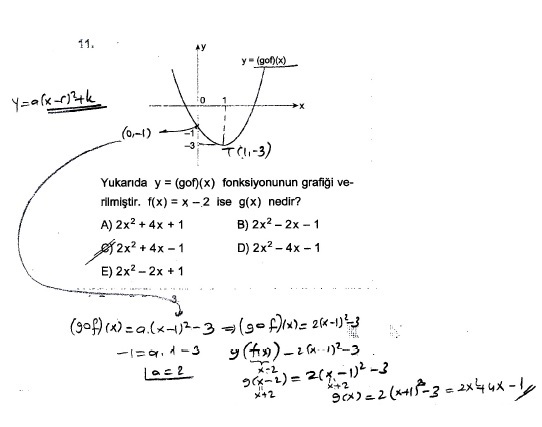 11.
y
y = (gof)(x)
y=a(x-r)²+k
0 1 x
(0,-1)
-1
-3
T(1,-3)
Yukarıda y = (gof)(x) fonksiyonunun grafiği ve-
rilmiştir. f(x) = x – 2 ise g(x) nedir?
A) 2x² + 4x + 1 B) 2x² – 2x – 1
C) 2x² + 4x – 1 D) 2x² – 4x – 1
E) 2x² – 2x + 1
(gof)(x)=a.(x-1)²-3 ⇒(gof)(x)=2(x-1)²-3
-1=a.1-3 g(f(x))-2(x-1)²-3
x-2
a=2 g(x-2)=2(x-1)²-3
x+2 x+2
g(x)=2(x+1)²-3=2x²+4x-1